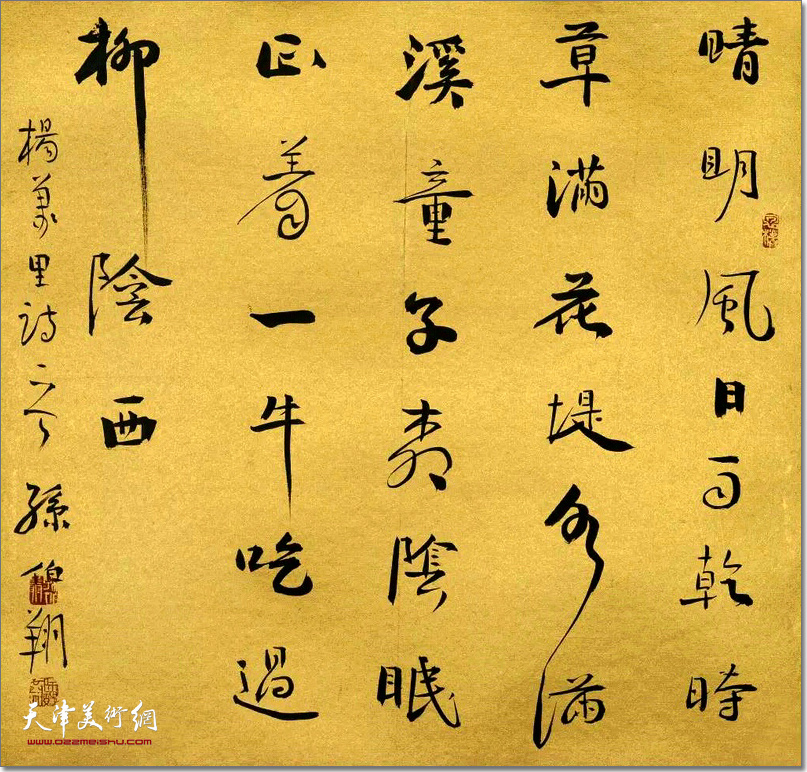 晴明風日雨乾時
草滿花堤水滿
溪童子柳陰眠
正着一牛吃過
柳陰西
楊萬里詩 孫伯翔
天津美術網
www.022meishu.com